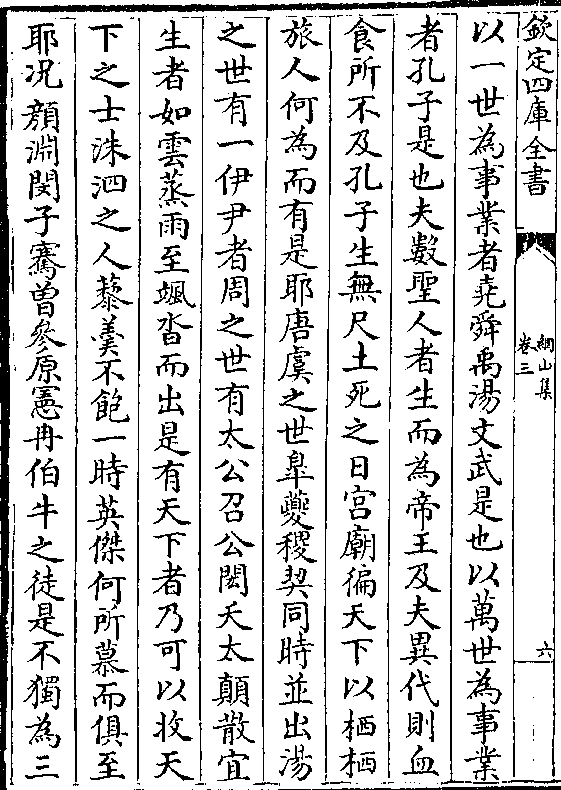 欽定四庫全書
綱山集
卷三
六
以一世為事業者堯舜禹湯文武是也以萬世為事業
者孔子是也夫數聖人者生而為帝王及夫異代則血
食所不及孔子生無尺土死之日宫廟徧天下以栖栖
旅人何為而有是耶唐虞之世臯夔稷契同時並出湯
之世有一伊尹者周之世有太公召公閎夭太顛散宜
生者如雲蒸雨至颯沓而出是有天下者乃可以收天
下之士洙泗之人藜羮不飽一時英傑何所慕而俱至
耶况顔淵閔子騫曽參原憲冉伯牛之徒是不獨為三